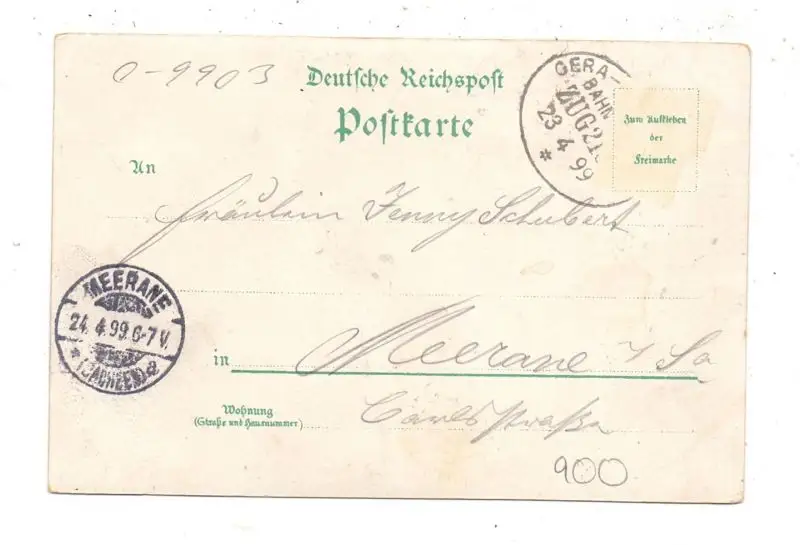 0-9903
Deutsche Reichspost
Postkarte
GERA-
BAHN
ZUG 21
23 4 99
*
Zum Aufkleben
der
Freimarke
An
Fräulein Jenny Schubert
MEERANE
24. 4. 99. 6-7 V.
* (SACHSEN) a
in
Meerane i/Sa
Wohnung
(Straße und Hausnummer)
Carlsstraße
900